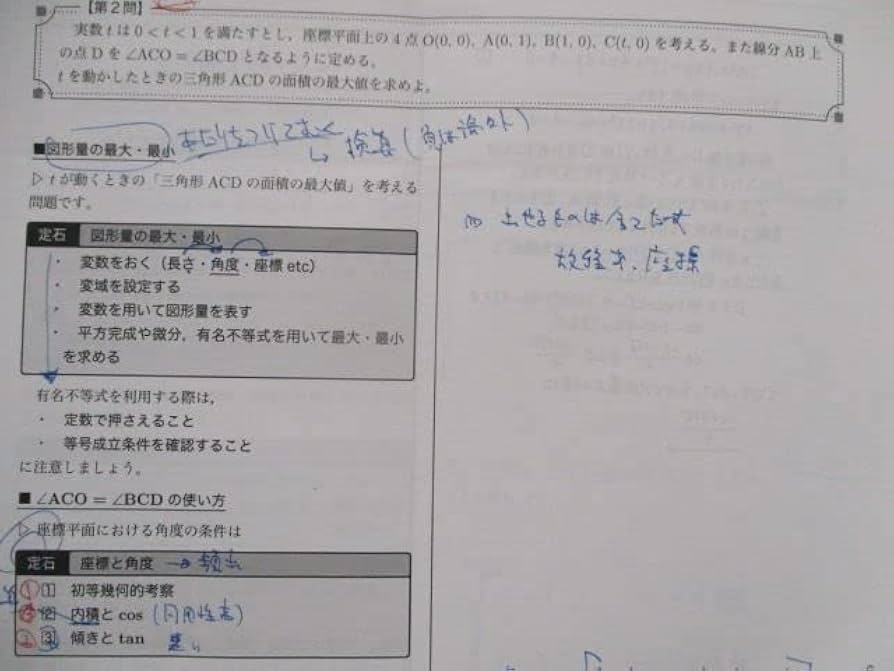 【第2問】
実数 t は 0 < t < 1 を満たすとし，座標平面上の 4 点 O(0, 0), A(0, 1), B(1, 0), C(t, 0) を考える。また線分 AB 上
の点 D を ∠ACO = ∠BCD となるように定める。
t を動かしたときの三角形 ACD の面積の最大値を求めよ。
■図形量の最大・最小
検算
▷ t が動くときの「三角形 ACD の面積の最大値」を考える
問題です。
定石 図形量の最大・最小
・ 変数をおく（長さ・角度・座標 etc）
・ 変域を設定する
・ 変数を用いて図形量を表す
・ 平方完成や微分，有名不等式を用いて最大・最小
を求める
有名不等式を利用する際は，
・ 定数で押さえること
・ 等号成立条件を確認すること
に注意しましょう。
■ ∠ACO = ∠BCD の使い方
▷ 座標平面における角度の条件は
定石 座標と角度 → 頻出
① 1 初等幾何的考察
2 内積と cos
② 3 傾きと tan